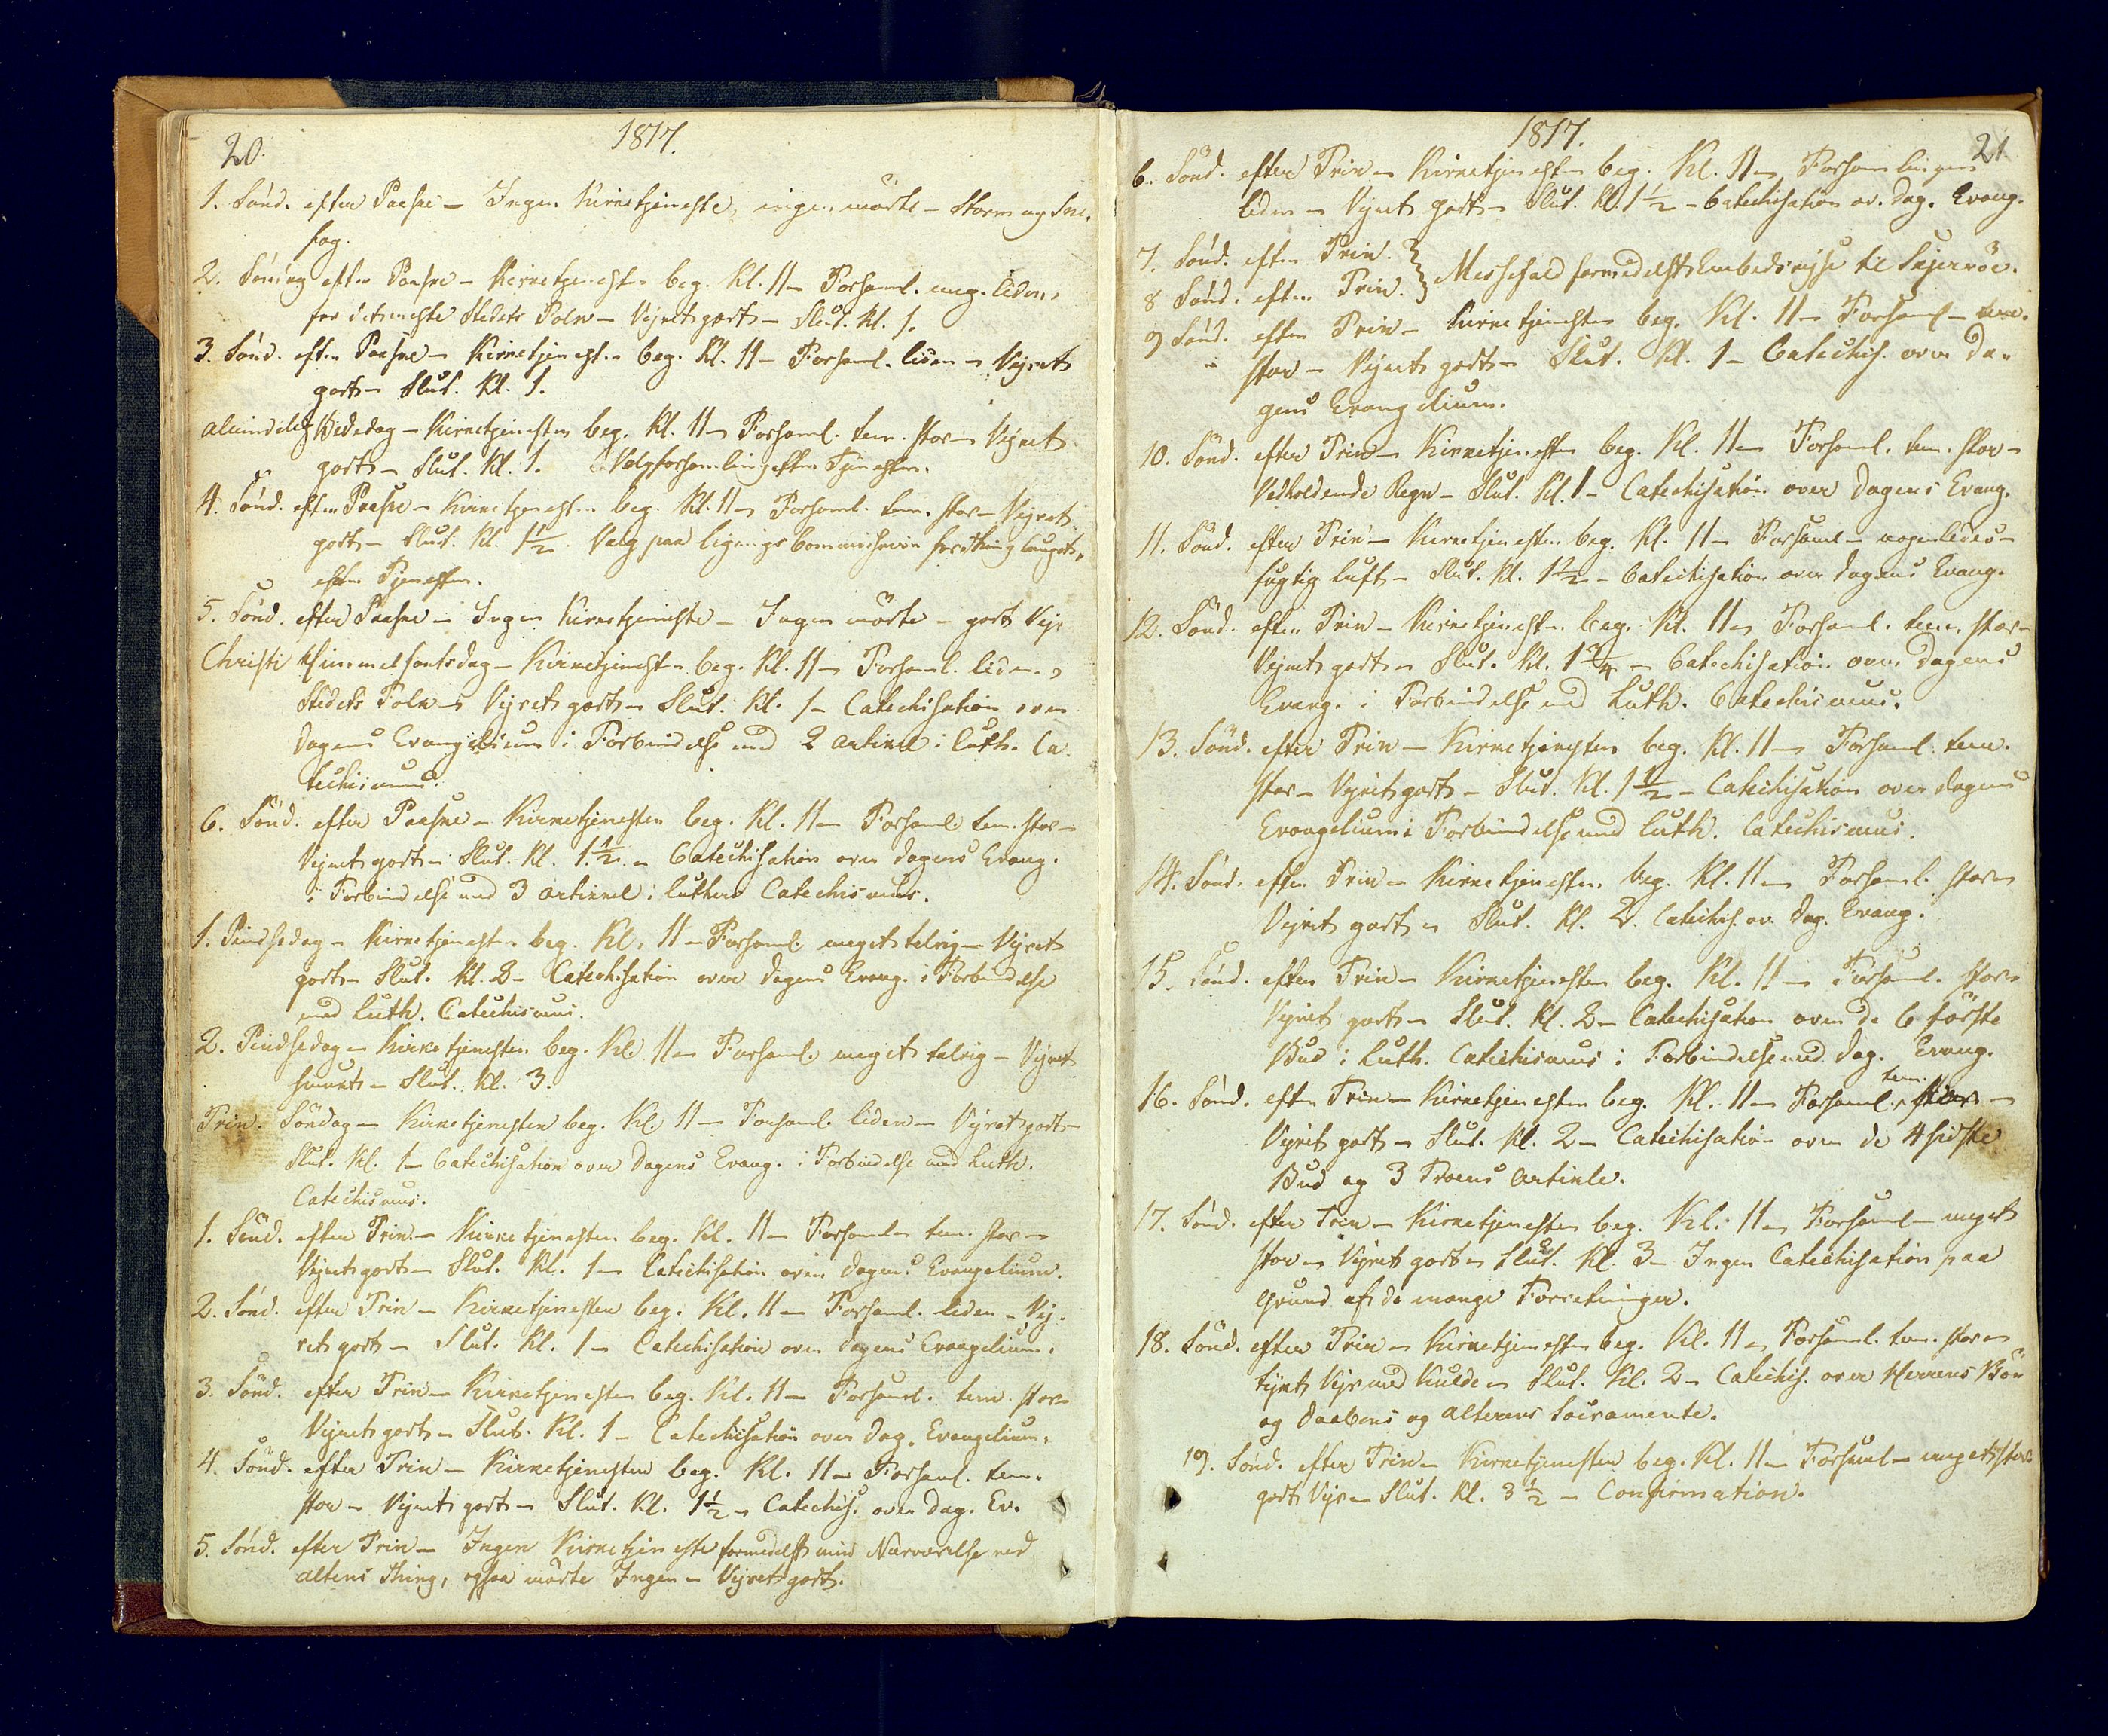 20.
1817.
1. Sönd. efter Paaske – Ingen Kirketjeneste, ingen mödte – Storm og Sne-
fog.
2. Söndag efter Paaske – Kirketjenesten beg. Kl. 11 – Forsaml. meg. liden,
for det meste Stedets Folk – Vejret godt – Slut. Kl. 1.
3. Sönd. efter Paaske – Kirketjenesten beg. Kl. 11 – Forsaml. liden – Vejret
godt – Slut. Kl. 1.
Almindelig Bededag – Kirketjenesten beg. Kl. 11 – Forsaml. tem. stor – Vejret
godt – Slut. Kl. 1. Valgforsamling efter Tjenesten.
4. Sönd. efter Paaske – Kirketjenesten beg. Kl. 11 – Forsaml. tem. stor – Vejret
godt – Slut. Kl. 1½. Valg paa Lignings Commission for Thinglauget,
efter Tjenesten.
5. Sönd. efter Paaske – Ingen Kirketjeneste – Ingen mödte – godt Vejr
Christi Himmelfartsdag – Kirketjenesten beg. Kl. 11 – Forsaml. liden,
Stedets Folk – Vejret godt – Slut. Kl. 1 – Catechisation over
Dagens Evangelium i Forbindelse med 2 Artikel i Luth. Ca-
techismus.
6. Sönd. efter Paaske – Kirketjenesten beg. Kl. 11 – Forsaml. tem. stor –
Vejret godt – Slut. Kl. 1½ – Catechisation over Dagens Evang.
i Forbindelse med 3 Artikkel i Luthers Catechismus.
1. Pindsedag – Kirketjenesten beg. Kl. 11 – Forsaml. meget talrig – Vejret
godt – Slut. Kl. 3 – Catechisation over Dagens Evang. i Forbindelse
med Luth. Catechismus.
2. Pindsedag – Kirketjenesten beg. Kl. 11 – Forsaml. meget talrig – Vejret
smukt – Slut. Kl. 3.
Trin. Söndag – Kirketjenesten beg. Kl. 11 – Forsaml. liden – Vejret godt –
Slut. Kl. 1 – Catechisation over Dagens Evang. i Forbindelse med Luth.
Catechismus.
1. Sönd. efter Trin. – Kirketjenesten beg. Kl. 11 – Forsaml. tem. stor –
Vejret godt – Slut. Kl. 1 – Catechisation over Dagens Evangelium.
2. Sönd. efter Trin – Kirketjenesten beg. Kl. 11 – Forsaml. liden – Vej-
ret godt – Slut. Kl. 1 – Catechisation over Dagens Evangelium.
3. Sönd. efter Trin – Kirketjenesten beg. Kl. 11 – Forsaml. tem. stor –
Vejret godt – Slut. Kl. 1 – Catechisation over Dag. Evangelium.
4. Sönd. efter Trin – Kirketjenesten beg. Kl. 11 – Forsaml. tem.
stor – Vejret godt – Slut. Kl. 1½ – Catechis. over Dag. Ev.
5. Sönd. efter Trin – Ingen Kirketjeneste formedelst min Nærværelse ved
Altens Thing, ogsaa mödte Ingen – Vejret godt.
1817.
21
6. Sönd. efter Trin – Kirketjenesten beg. Kl. 11 – Forsamlingen
liden – Vejret godt – Slut. Kl. 1½ – Catechisation ov. Dag. Evang.
7. Sönd. efter Trin.
8 Sönd. efter Trin. } Messefald formedelst Embedsrejse til Skjervöe.
9 Sönd. efter Trin – Kirketjenesten beg. Kl. 11 – Forsaml – tem.
stor – Vejret godt – Slut. Kl. 1 – Catechis. over Da-
gens Evangelium.
10. Sönd. efter Trin – Kirketjenesten beg. Kl. 11 – Forsaml. tem. stor –
Vedholdende Regn – Slut. Kl. 1 – Catechisation over Dagens Evang.
11. Sönd. efter Trin – Kirketjenesten beg. Kl. 11 – Forsaml – nogenledes –
fugtig Luft – Slut. Kl. 1½ – Catechisation over Dagens Evang.
12. Sönd. efter Trin – Kirketjenesten beg. Kl. 11 – Forsaml. tem. stor –
Vejret godt – Slut. Kl. 1¾ – Catechisation over Dagens
Evang. i Forbindelse med Luth. Catechismus.
13. Sönd. efter Trin – Kirketjenesten beg. Kl. 11 – Forsaml. tem.
stor – Vejret godt – Slut. Kl. 1½ – Catechisation over Dagens
Evangelium i Forbindelse med Luth. Catechismus.
14. Sönd. efter Trin – Kirketjenesten beg. Kl. 11 – Forsaml. stor –
Vejret godt – Slut. Kl. 2. Catechis. ov. Dag. Evang.
15. Sönd. efter Trin – Kirketjenesten beg. Kl. 11 – Forsaml. stor –
Vejret godt – Slut. Kl. 2 – Catechisation over de 6 förste
Bud i Luth. Catechismus i Forbindelse med Dag. Evang.
16. Sönd. efter Trin – Kirketjenesten beg. Kl. 11 – Forsaml. tem. stor –
Vejret godt – Slut. Kl. 2 – Catechisation over de 4 sidste
Bud og 3 Troens Artikle.
17. Sönd. efter Trin – Kirketjenesten beg. Kl. 11 – Forsaml – meget
stor – Vejret godt – Slut. Kl. 3 – Ingen Catechisation paa
Grund af de mange Forretninger.
18. Sönd. efter Trin – Kirketjenesten beg. Kl. 11 – Forsaml. tem. stor –
tyvt Vejr med Kulde – Slut. Kl. 2 – Catechis. over Herrens Bön
og Daabens og Alterens Sacramente.
19. Sönd. efter Trin – Kirketjenesten beg. Kl. 11 – Forsaml – meget stor
godt Vejr – Slut. Kl. 3½ – Confirmation.